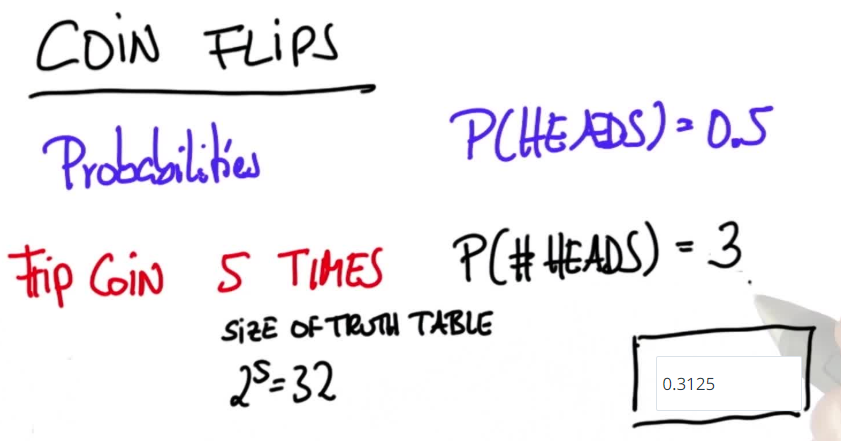 COIN FLIPS
Probabilities
P(HEADS) = 0.5
Flip COIN 5 TIMES
P(# HEADS) = 3
SIZE OF TRUTH TABLE
2^5 = 32
0.3125